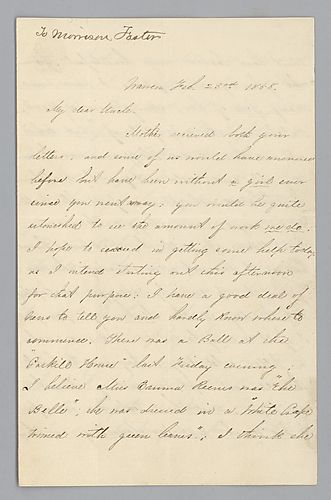 To Morrison Foster
Warren Feb. 23rd 1858.
My dear Uncle.
Mother recieved both your
letters, and some of us would have answered
before but have been without a girl ever
since you went away; you would be quite
astonished to see the amount of work we do.
I hope to succeed in getting some help today
as I intend starting out this afternoon
for that purpose; I have a good deal of
news to tell you and hardly know where to
commence. There was a Ball at the
House" last Friday evening;
I believe Miss Emma was "the
Belle"; she was dressed in a "White Crape
trimed with green leaves"; I think she